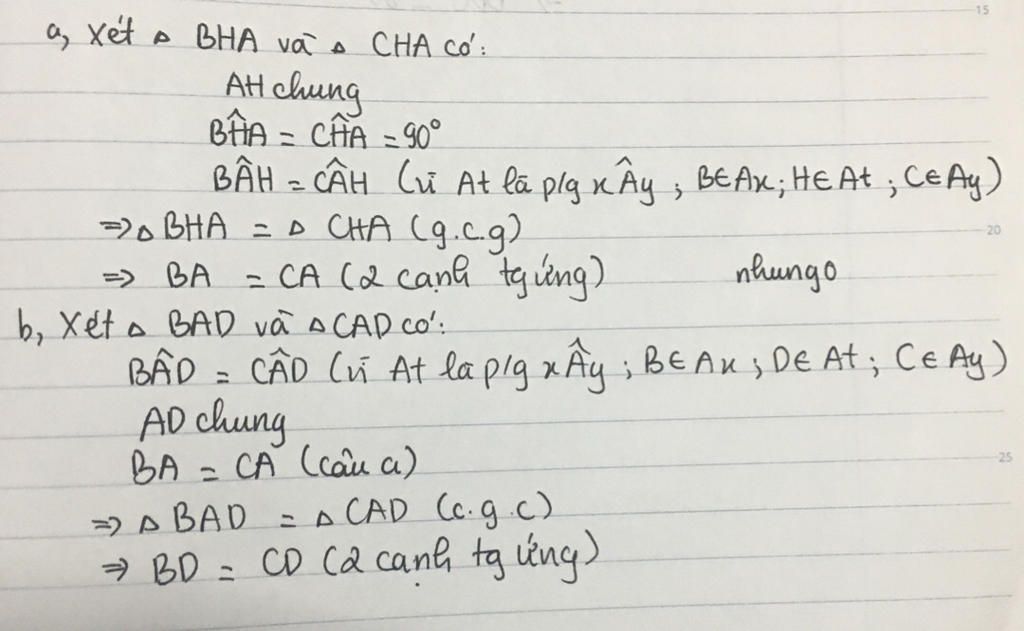 15
a, Xét △ BHA và △ CHA có:
AH chung
BĤA = CĤA = 90°
BÂH = CÂH (vì At là p/g xÂy ; B∈Ax; H∈At ; C∈Ay)
⇒ △ BHA = △ CHA (g.c.g)
20
⇒ BA = CA (2 cạnh tg ứng) nhungo
b, Xét △ BAD và △ CAD có:
BÂD = CÂD (vì At là p/g xÂy ; B∈Ax ; D∈At ; C∈Ay)
AD chung
BA = CA (câu a)
25
⇒ △ BAD = △ CAD (c.g.c)
⇒ BD = CD (2 cạnh tg ứng)